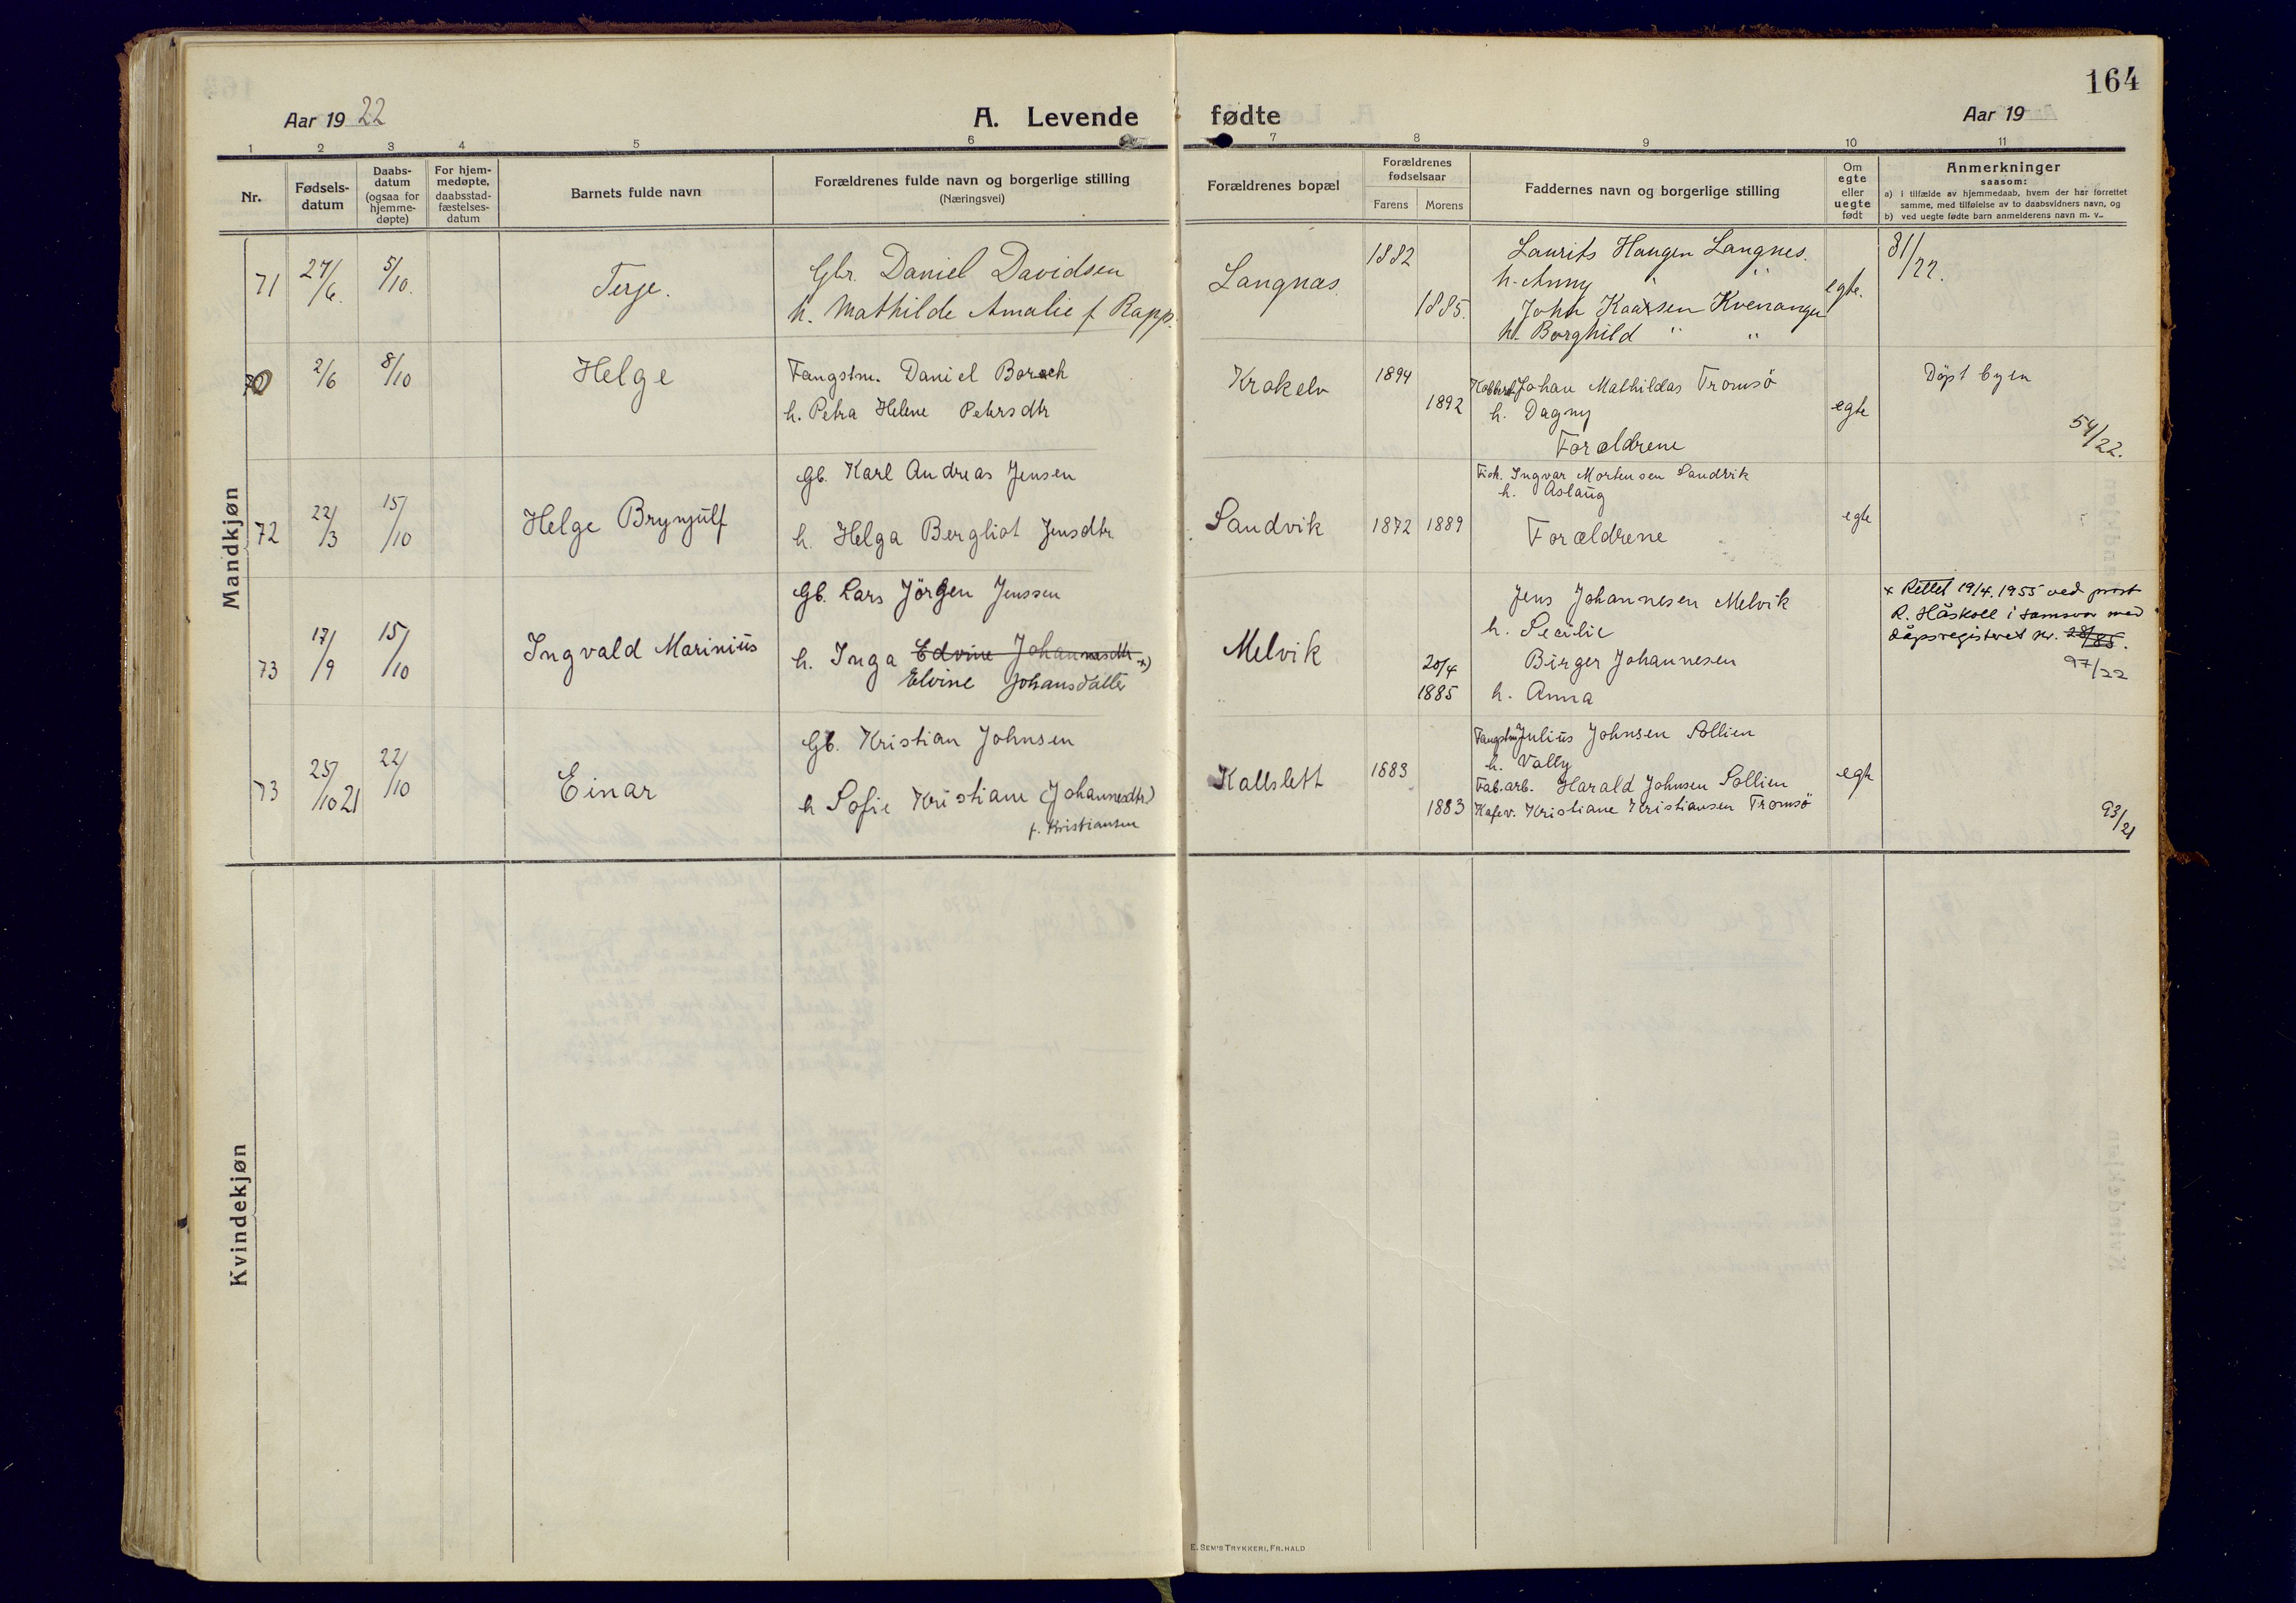 164
Aar 19 22
A. Levende fødte
Aar 19
1 2 3 4 5 6 7 8 9 10 11
Nr.
Fødsels-
datum
Daabs-
datum
(ogsaa for
hjemme-
døpte)
For hjem-
medøpte,
daabsstad-
fæstelses-
datum
Barnets fulde navn
Forældrenes fulde navn og borgerlige stilling
(Næringsvei)
Forældrenes bopæl
Forældrenes
fødselsaar
Farens Morens
Faddernes navn og borgerlige stilling
Om
egte
eller
uegte
født
Anmerkninger
saasom:
a) i tilfælde av hjemmedaab, hvem der har forrettet
samme, med tilføielse av to daabsvidners navn, og
b) ved uegte fødte barn anmelderens navn m. v.
Mandkjøn
71 27/6. 5/10. Terje.
Gbr. Daniel Davidsen
h. Mathilde Amalie f Rapp.
Langnas 1882 1885.
Laurits Haugen Langnes.
h. Anny " "
John Kaarsen Kvenangen
h. Borghild " "
egte.
81/22.
70 2/6 8/10 Helge
Fangstm. Daniel Borch
h. Petra Helene Petersdtr
Krokelv 1894 1892
Johan Mathildas Tromsö
h. Dagny
Forældrene
egte
Döpt byen
54/22.
72 22/3 15/10 Helge Brynjulf
Gb. Karl Andreas Jensen
h. Helga Bergliot Jensdtr
Sandvik 1872 1889
Fisk. Ingvar Mortensen Sandvik
h. Aslaug
Forældrene
egte
73 17/9 15/10 Ingvald Marinius
Gb. Lars Jörgen Jenssen
h. Inga Edvine Johannesdtr x)
Elvine Johansdatter
Melvik 20/4 1885
Jens Johannesen Melvik
h. Secilie
Birger Johannesen
h. Anna
x Rettet 19/4. 1955 ved prost
R. Håskoll i samsvar med
dåpsregistret nr. 28/85.
97/22
73 25/10 21 22/10 Einar
Gb. Kristian Johnsen
h Sofie Kristiane (Johannesdtr)
f. Kristiansen
Kallslett 1883 1883
Fangstm Julius Johnsen Sollien
h. Vally
Fab.arb. Harald Johnsen Sollien
Kafev. Kristiane Kristiansen Tromsö
egte
93/21
Kvindekjøn
E. SEM'S TRYKKERI, FR.HALD